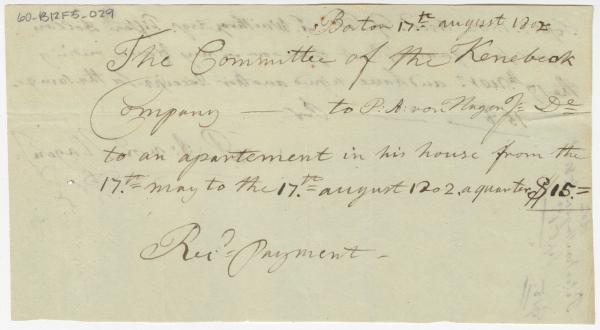 60-B12F5-029
Boston 17.th august 1802
The Committee of the Kenebeck
Company — to P: A: von Hagen Jr. Dr
to an apartement in his house from the
17.th may to the 17.th august 1802. a quarter $15.=
Rec.d Payment –